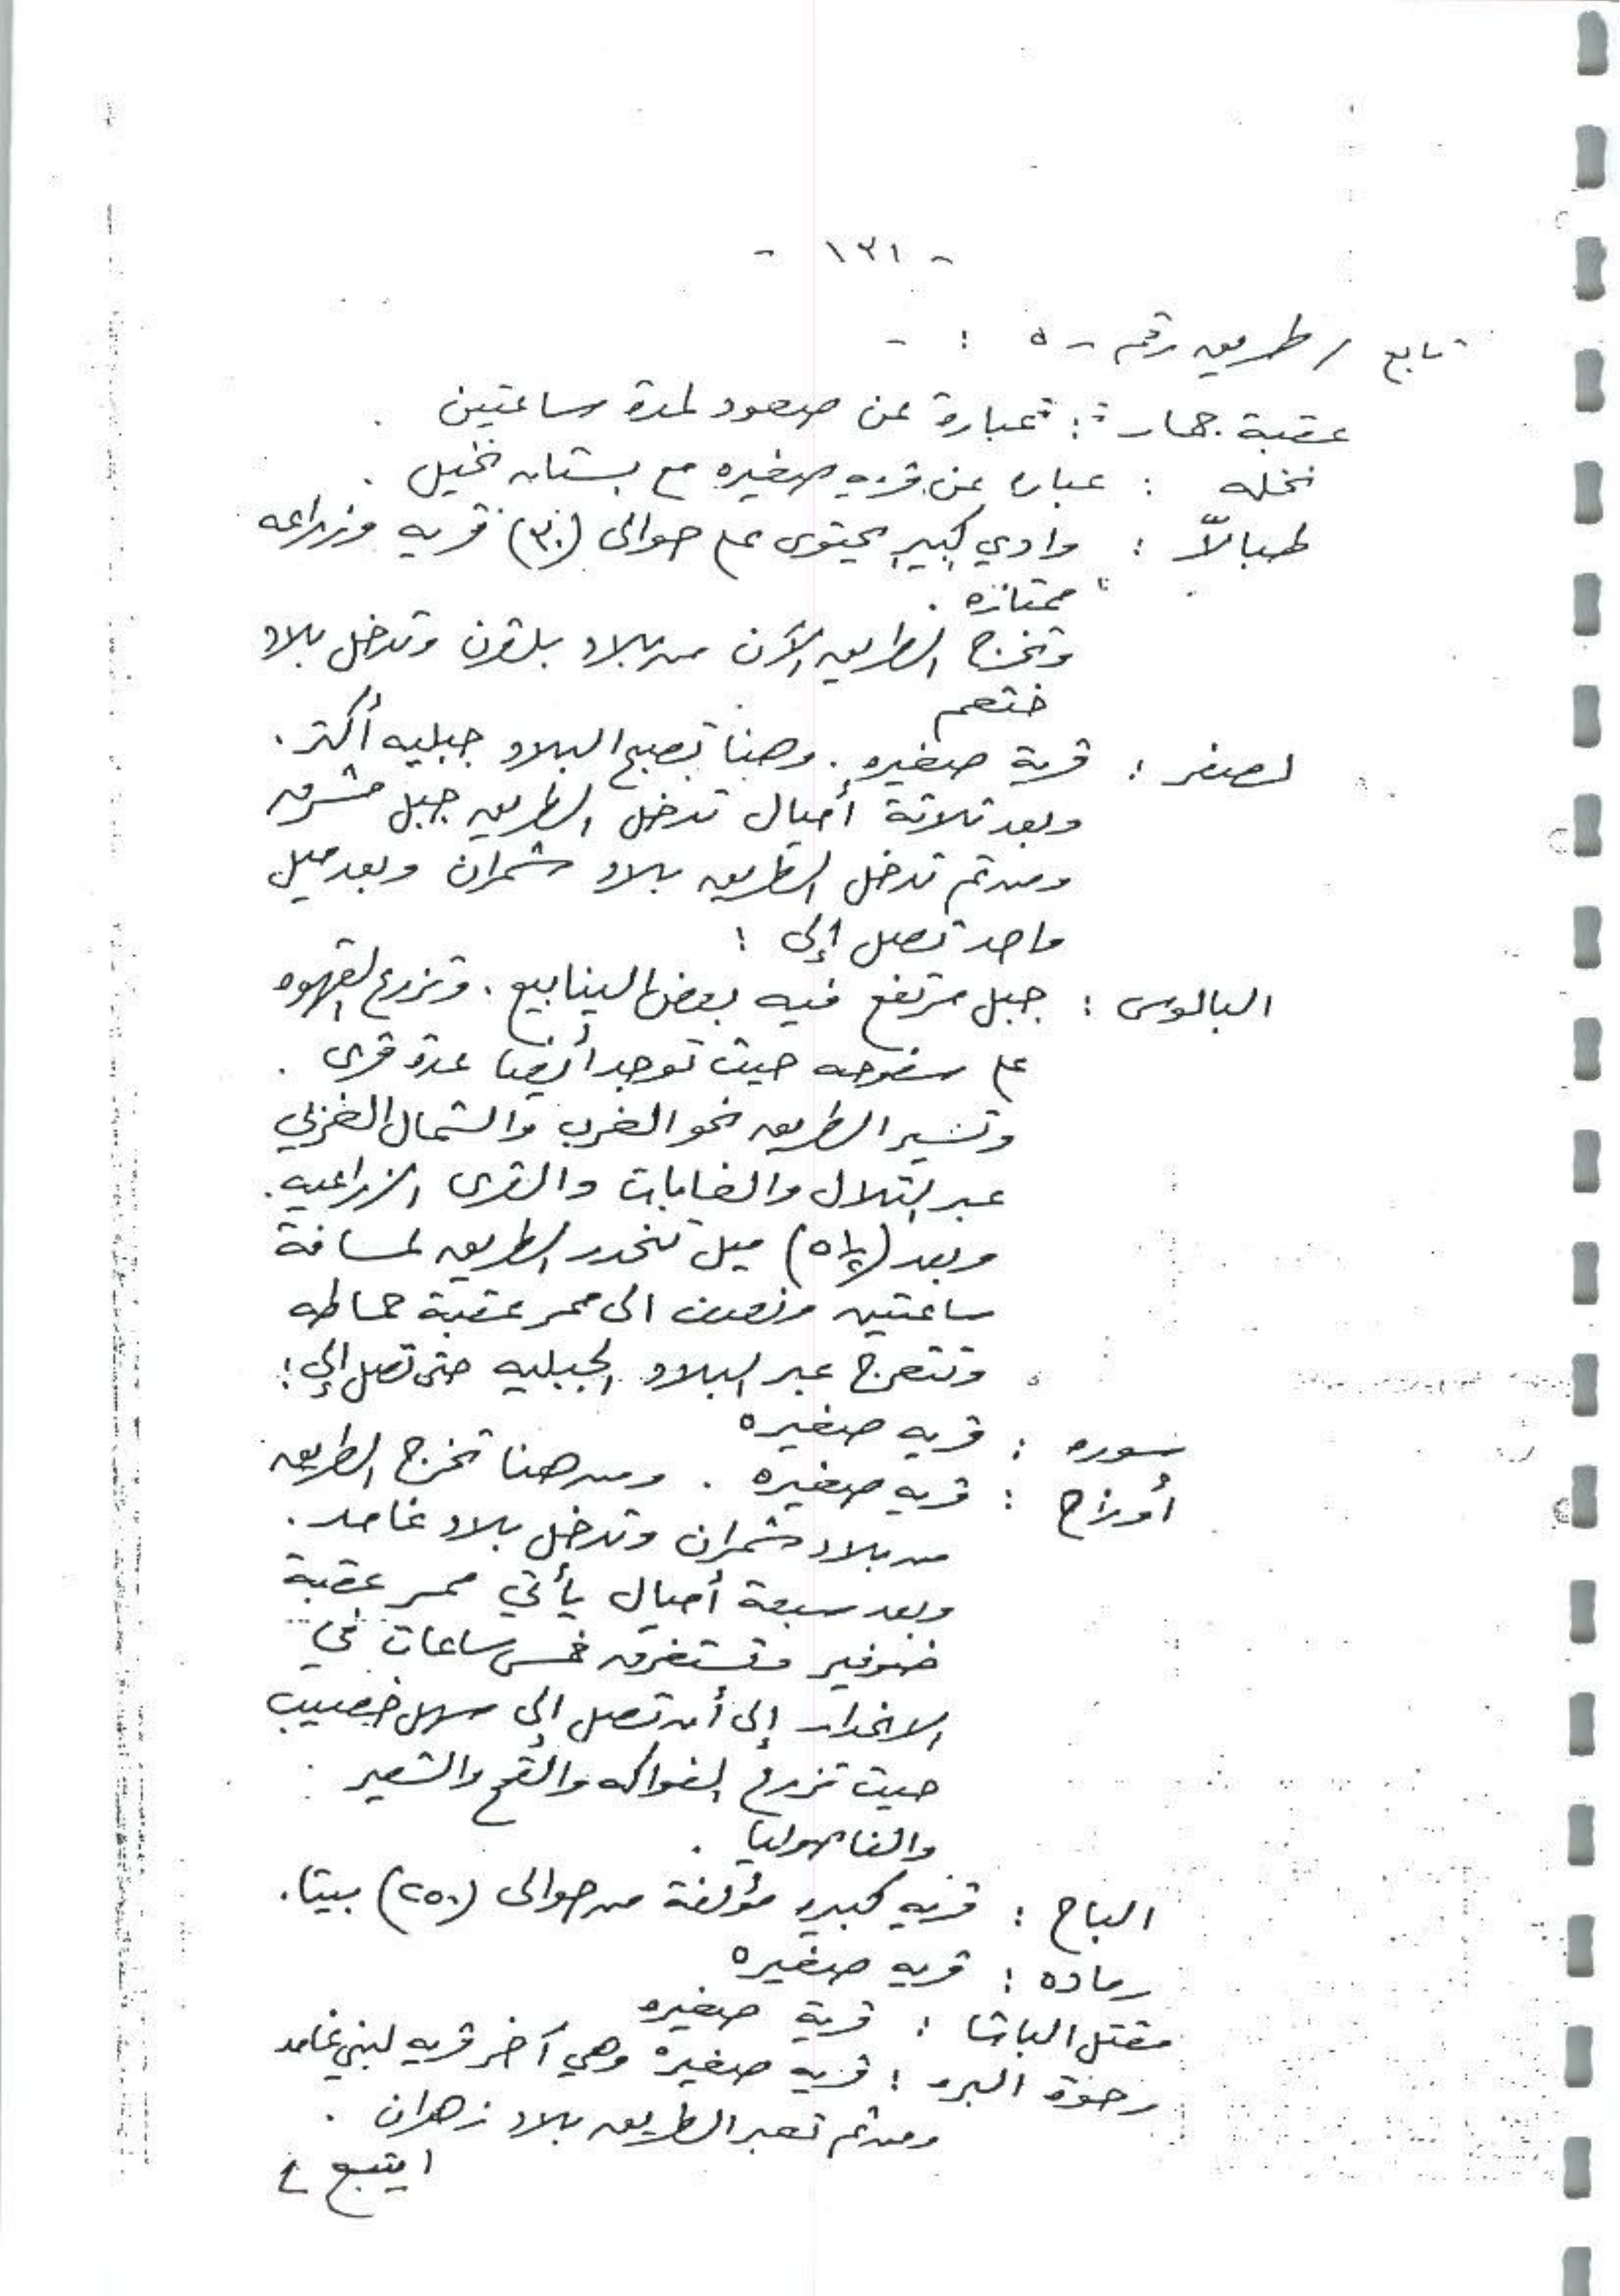 - ١٣١ -
تابع / طريق رقم - ٥ : -
عقبة جهار : عبارة عن صعود لمدة ساعتين .
نخله : عباره عن قريه صغيره مع بستان نخيل .
طبالاّ : وادي كبير يحتوى على حوالى (٣٠) قريه وزراعه
ممتازه .
وتخرج الطريق الآن من بلاد بلقرن وتدخل بلاد
خثعم
لصفر : قرية صغيره . وهنا تصبح البلاد جبليه أكثر .
وبعد ثلاثة أميال تدخل الطريق جبل مشرف
ومن ثم تدخل الطريق بلاد شمران وبعد ميل
واحد تصل إلى :
البالوس : جبل مرتفع فيه بعض الينابيع . وتزرع القهوه
على سفوحه حيث توجد أيضا عدة قرى .
وتسير الطريق نحو الغرب والشمال الغربي
عبر التلال والغابات والقرى الزراعيه .
وبعد (٥١/٢) ميل تنحدر الطريق لمسافة
ساعتين ونصف الى ممر عقبة حماطه
وتتعرج عبر البلاد الجبليه حتى تصل إلى :
سوره : قريه صغيره
أوزاح : قريه صغيره . ومن هنا تخرج الطريق
من بلاد شمران وتدخل بلاد غامد .
وبعد سبعة أميال يأتي ممر عقبة
وتستغرق خمس ساعات في
الانحدار إلى أن تصل إلى سهل خصيب
حيث تزرع الفواكه والقمح والشعير
والفاصوليا .
الباح : قريه كبيره مؤلفة من حوالى (٢٥٠) بيتا .
رماده : قريه صغيره
مقتل الباشا : قرية صغيره
رحوة البر : قريه صغيره وهي آخر قريه لبني غامد
ومن ثم تعبر الطريق بلاد زهران .
/ يتبع